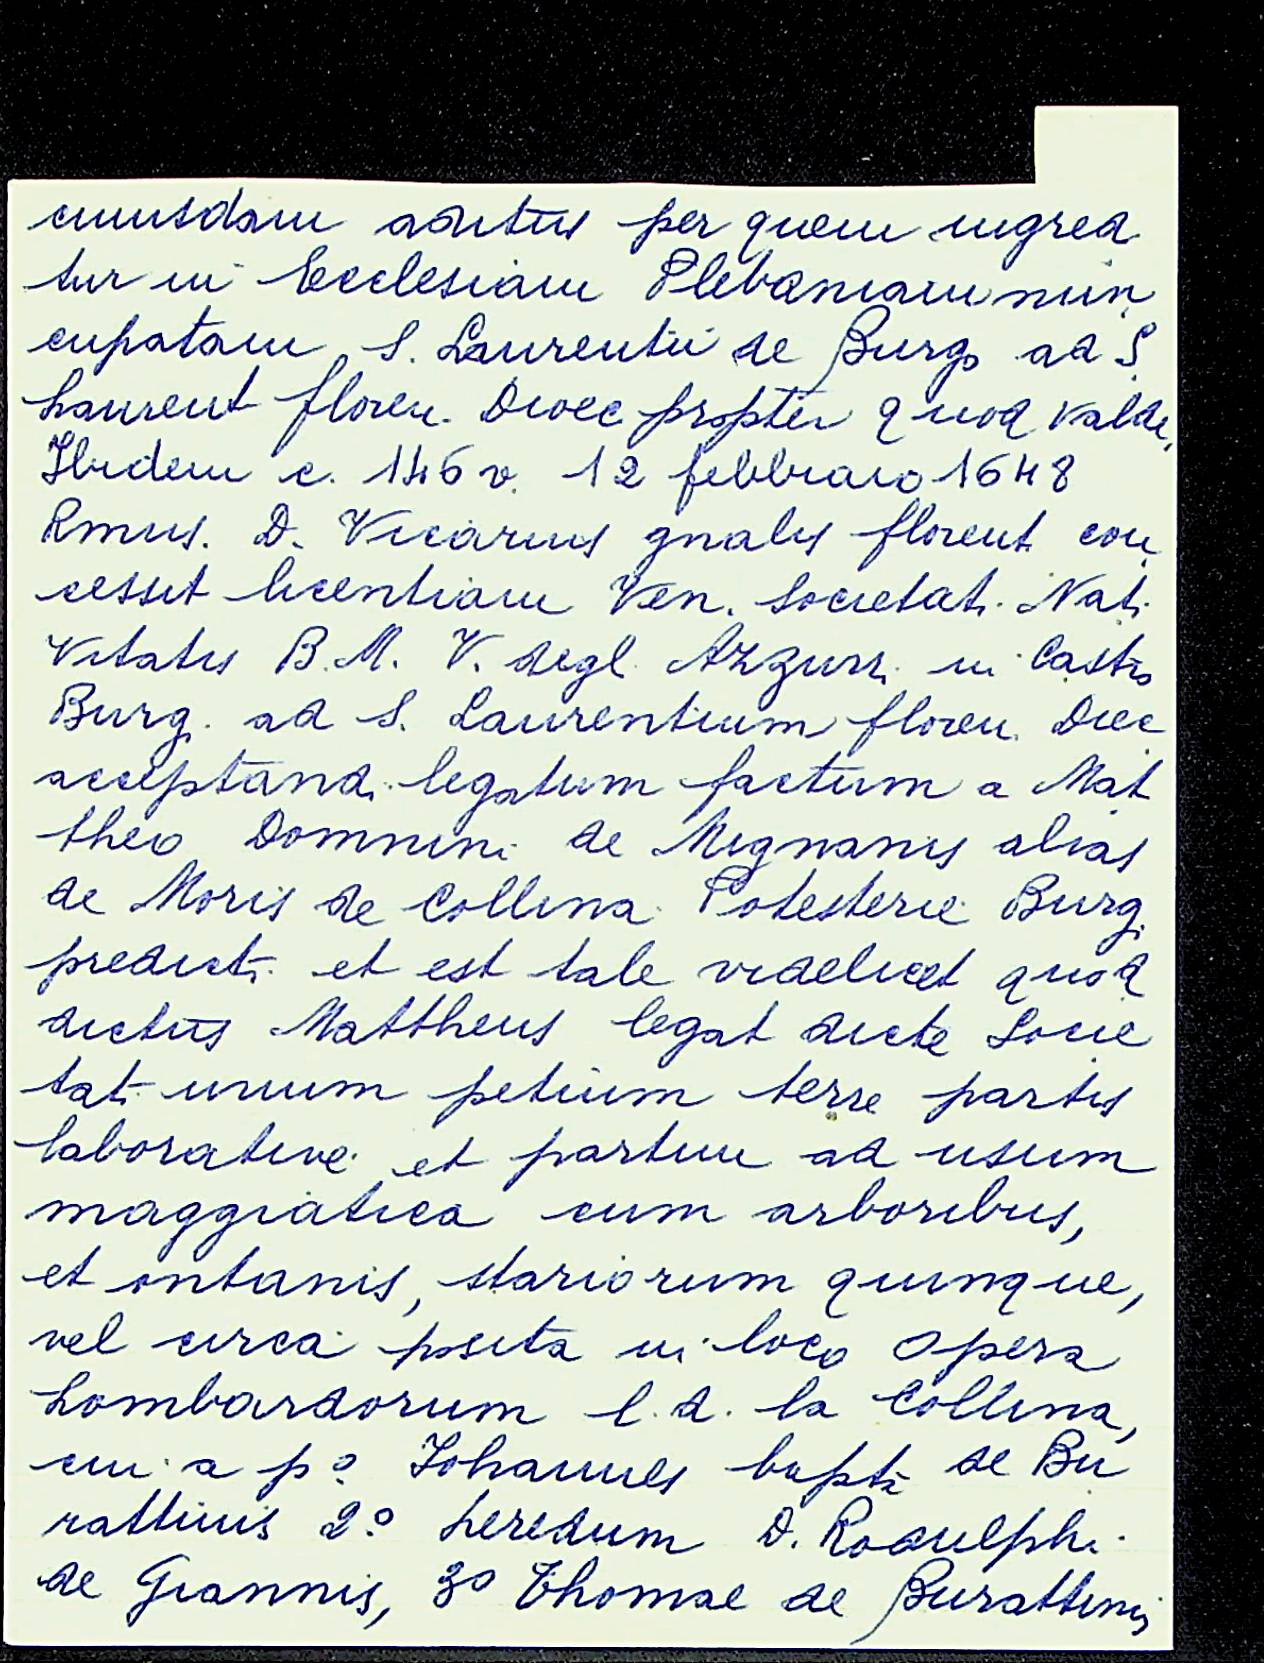 cuiusdam aditus per quem ingred
tur in Ecclesiam Plebaniam nun
cupatam S. Laurentii de Burgo ad S.
Laurent floren. Dioec propter quod valde,
Ibidem c. 146 v. 12 febbraio 1648
Rmus. D. Vicarius gnalis florent con
cessit licentiam Ven. Societati Nati
vitatis B. M. V. degl Azzurri in Castro
Burg. ad S. Laurentium floren. Diec
acceptandi legatum factum a Mat
theo Domnini de Mignanis alias
de Moris de Collina Potesterie Burg.
predicti et est tale videlicet quod
dictus Mattheus legat dicte Socie
tati unum petium terre partis
laborative et partim ad usum
maggiatica cum arboribus,
et ontanis, stariorum quinque,
vel circa posita in loco Opera
Lombardorum l. d. la Collina,
cui a p.o Johannes bapt. de Bu
rattinis 2.o heredum D. Rodulphi
de Giannis, 3o Thomae de Burattinis